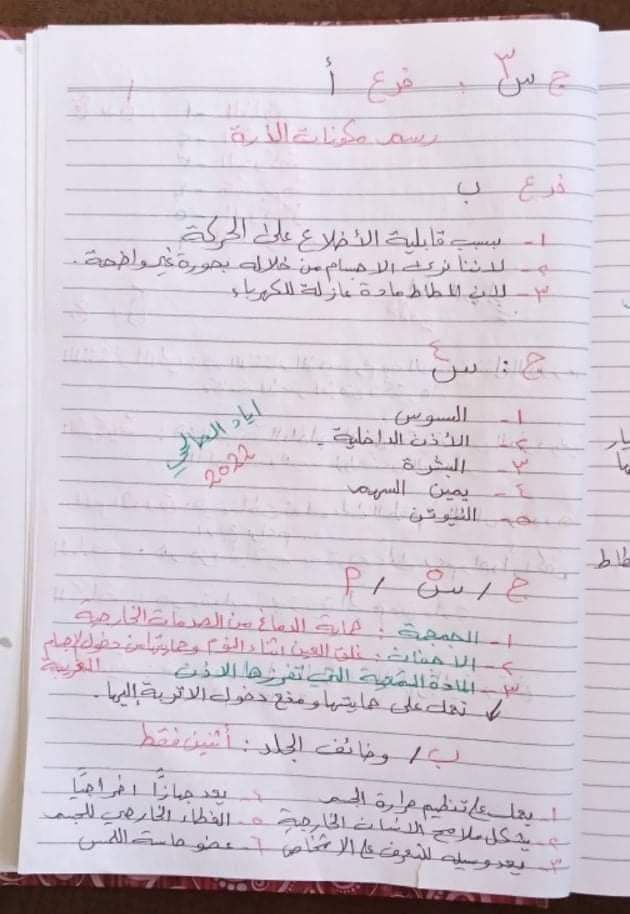 ج س٣ : فرع أ
رسم مكونات الذرة
فرع ب
١- بسبب قابلية الأضلاع على الحركة
٢- لاننا نرى الاجسام من خلاله بصورة غير واضحة.
٣- لان المطاط مادة عازلة للكهرباء
ج : س٤
١- السوس
٢- الأذن الداخلية.
٣- البشرة
٤- يمين السهم
٥- النيوتن
اياد الصالحي
2022
ج / س٥ / P
١- الجمجمة : حماية الدماغ من الصدمات الخارجية
٢- الاجفان : غلق العين اثناء النوم وحمايتها من دخول الاجسام الغريبة
٣- المادة الشمعية التي تفرزها الاذن
تعمل على حمايتها ومنع دخول الاتربة إليها.
ب / وظائف الجلد : أثنين فقط
١- يعمل على تنظيم حرارة الجسم ٤- يعد جهازاً اخراجياً
٢- يشكل ملامح الانسان الخارجية ٥- الغطاء الخارجي للجسم
٣- يعد وسيله للتعرف على الاشخاص ٦- عضو حاسة اللمس